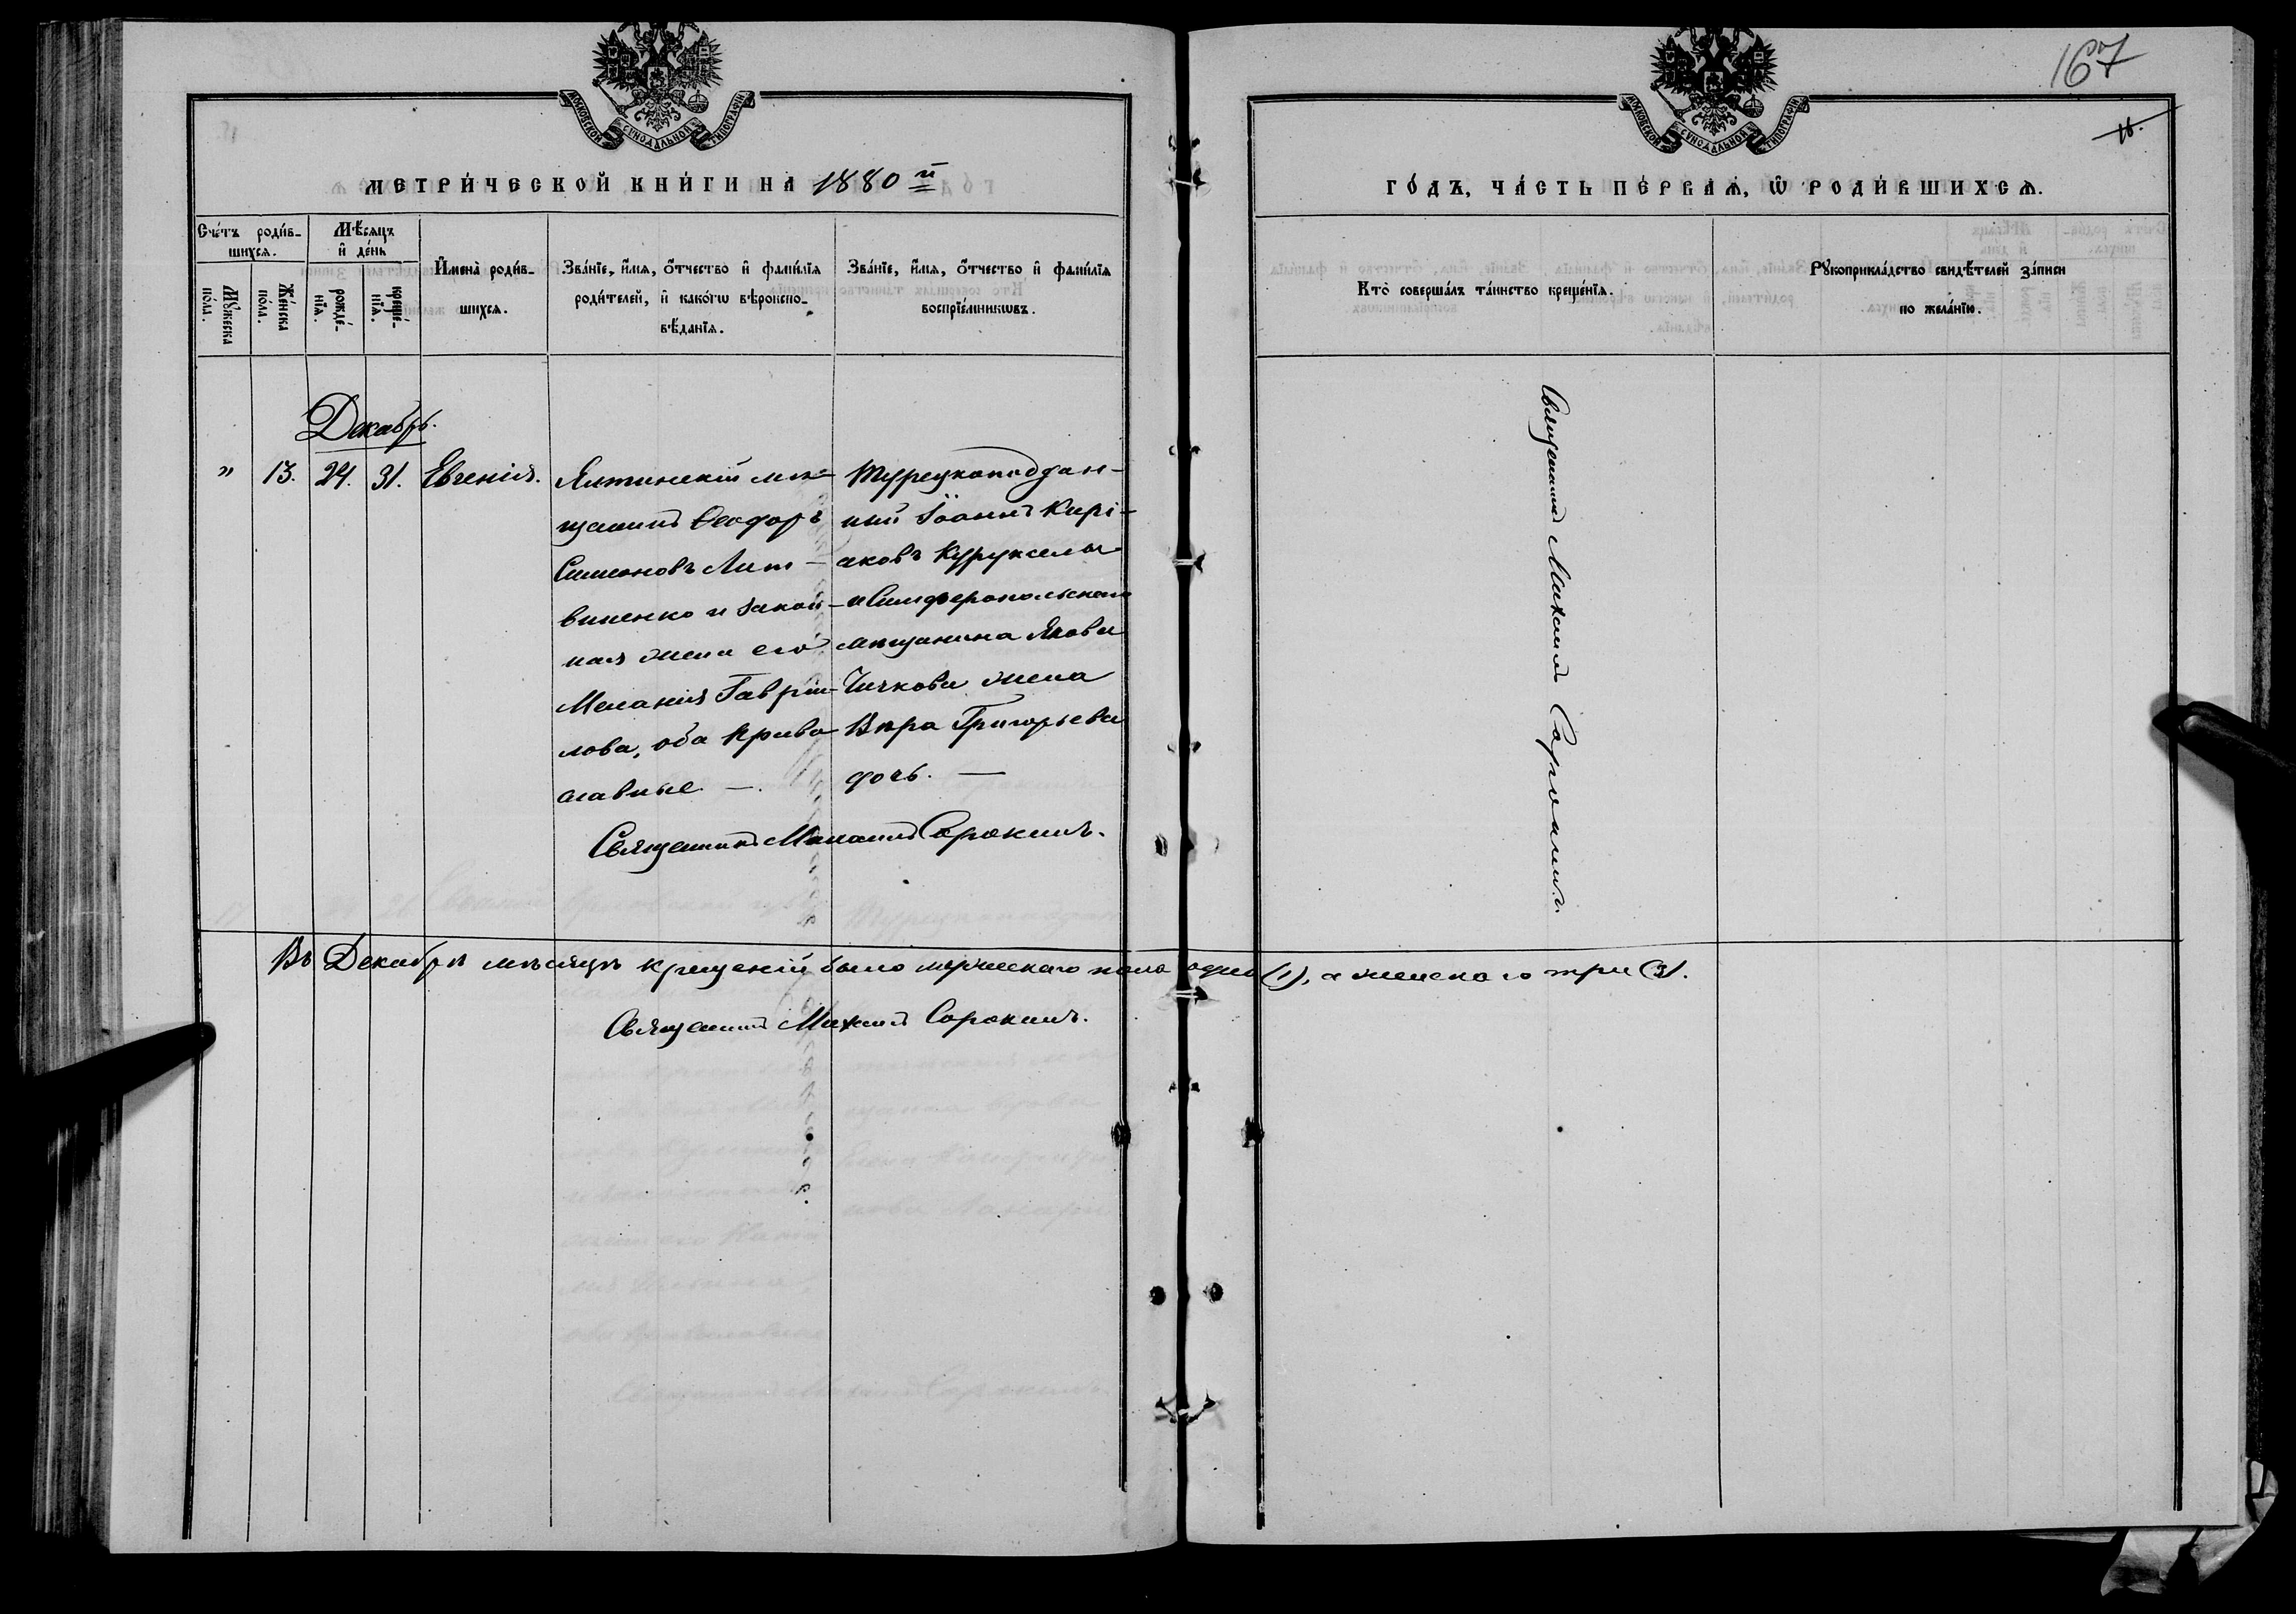 167
МОСКОВСКОЙ СУНОДАЛЬНОЙ ТИПОГРАФІИ
МОСКОВСКОЙ СУНОДАЛЬНОЙ ТИПОГРАФІИ
МЕТРИ́ЧЕСКОЙ КНИ́ГИ НА 1880й
ГО́ДЪ, ЧА́СТЬ ПЕ́РВАѦ, Ѡ РОДИ́ВШИХСѦ.
Сче́тъ роди́в-
шихсѧ.
Мꙋ́жеска
по́ла.
Же́нска
по́ла.
Мѣ́сѧцъ
и҆ де́нь
рожде́-
нїѧ.
креще́-
нїѧ.
И҆мена̀ роди́в-
шихсѧ.
Зва́нїе, и҆́мѧ, ѻ҆́тчество и҆ фамѝлїѧ
роди́телей, и҆ како́гѡ вѣроиспо-
вѣ́данїѧ.
Зва́нїе, и҆́мѧ, ѻ҆́тчество и҆ фамѝлїѧ
воспрїе́мникѡвъ.
Кто̀ соверша́лъ та́инство креще́нїѧ.
Рꙋкоприкла́дство свидѣ́телей за́писи
по жела́нїю.
Декабрь.
" 13. 24. 31. Евгенія.
Ялтинскій мѣ-
щанинъ Ѳеодоръ
Симеоновъ Лит-
виненко и закон-
ная жена его
Меланія Гаврі-
лова, оба Право-
славные —.
Турецкоподдан-
ный Іоаннъ Кирі-
аковъ Курукселы
и Симферопольскаго
мѣщанина Якова
Чичкова жена
Вѣра Григорьева
дочь. —
Священникъ Михаилъ Сорокинъ.
Священникъ Михаилъ Сорокинъ.
Въ Декабрѣ мѣсяцѣ крещеній было мужескаго пола одно (1), а женскаго три (3).
Священникъ Михаилъ Сорокинъ.